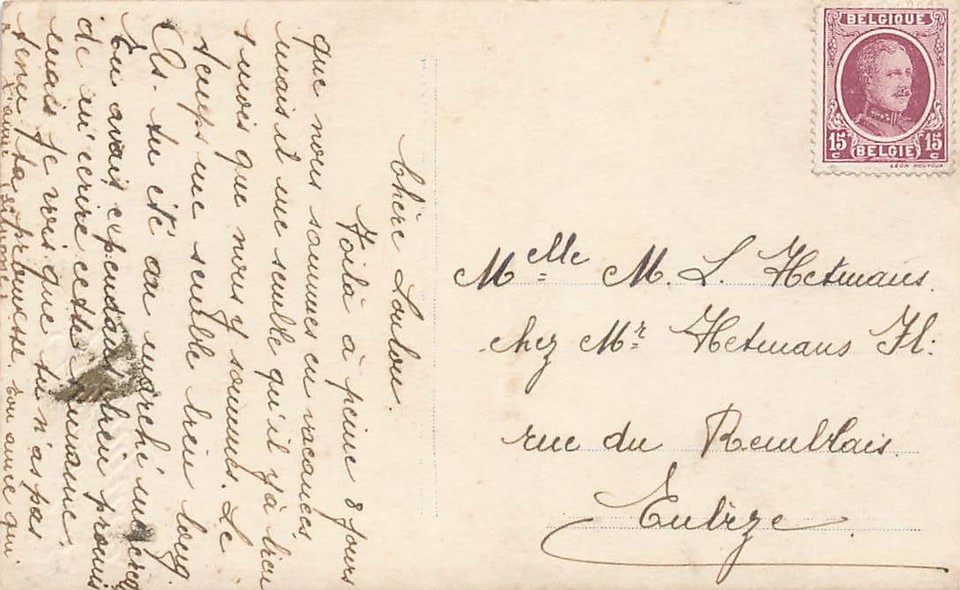 Chère Loulou.
Voilà à peine 8 jours
que nous sommes en vacances
mais il me semble qu'il y à bien
1 mois que nous y sommes. Le
temps me semble bien long.
As-tu été au marché mercq
Tu avais cependant bien promis
de m'ecrire cette semaine.
mais je vois que tu n'as pas
tenu ta promesse. ton amie qui
t'aime Simone.
BELGIQUE
15 c BELGIE 15 c
Melle M. L. Hetmans.
chez Mr Hetmans Fl:
rue du Remblais
Eubize